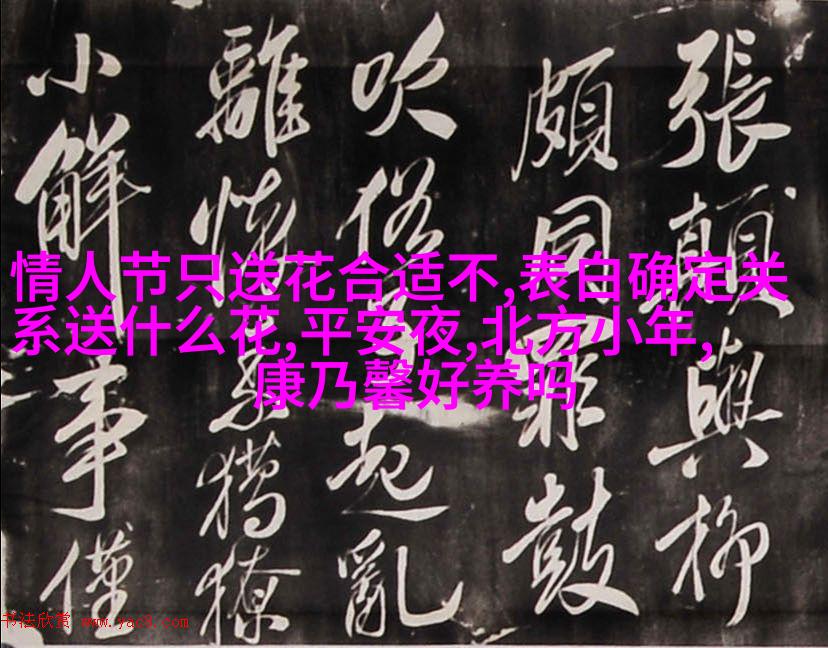 張顛與柳
頗同罪鼓
吹俗起亂
離懷素獦獠
小解事僅
情人节只送花合适不,表白确定关
系送什么花,平安夜,北方小年,
康乃馨好养吗
书法欣赏 www.yac8.com